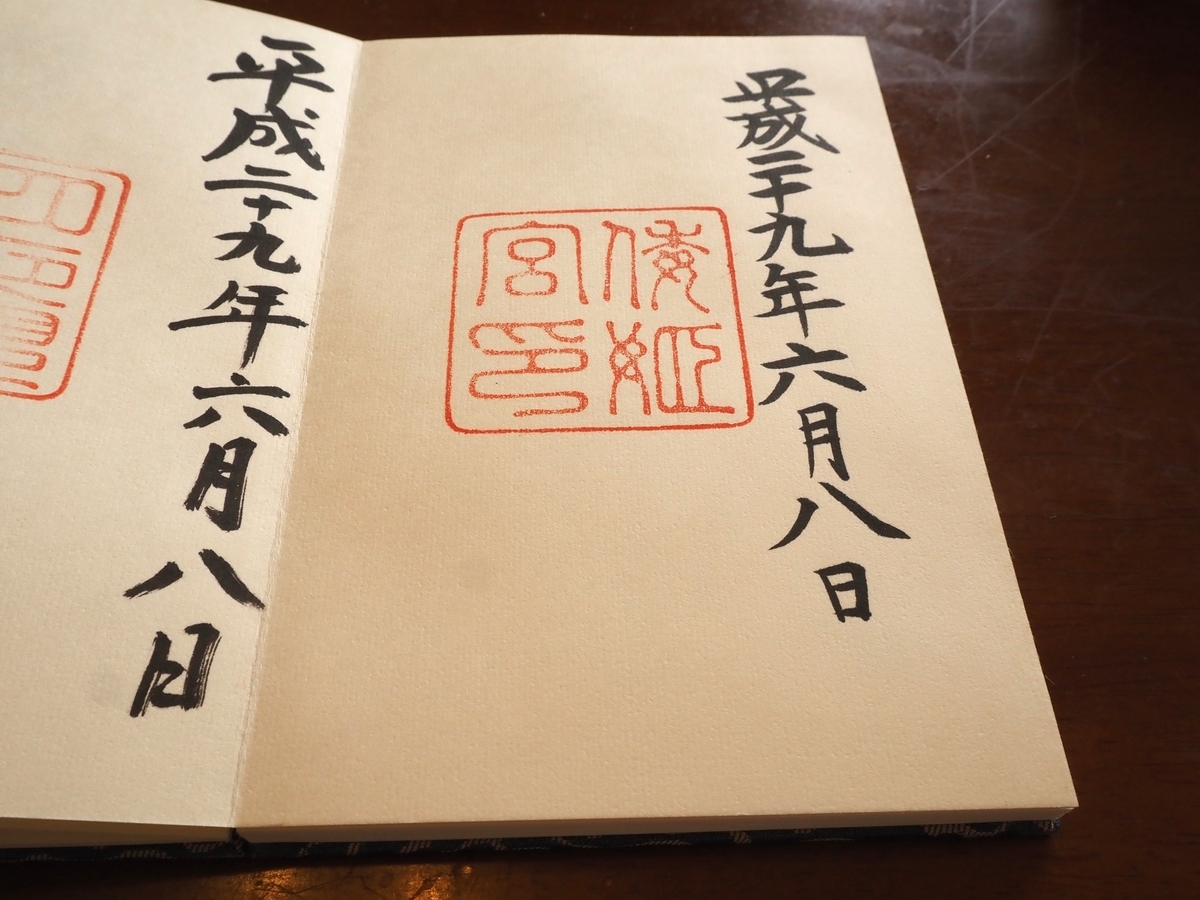 平成二十九年六月八日
倭姫
宮印
平成二十九年六月八日